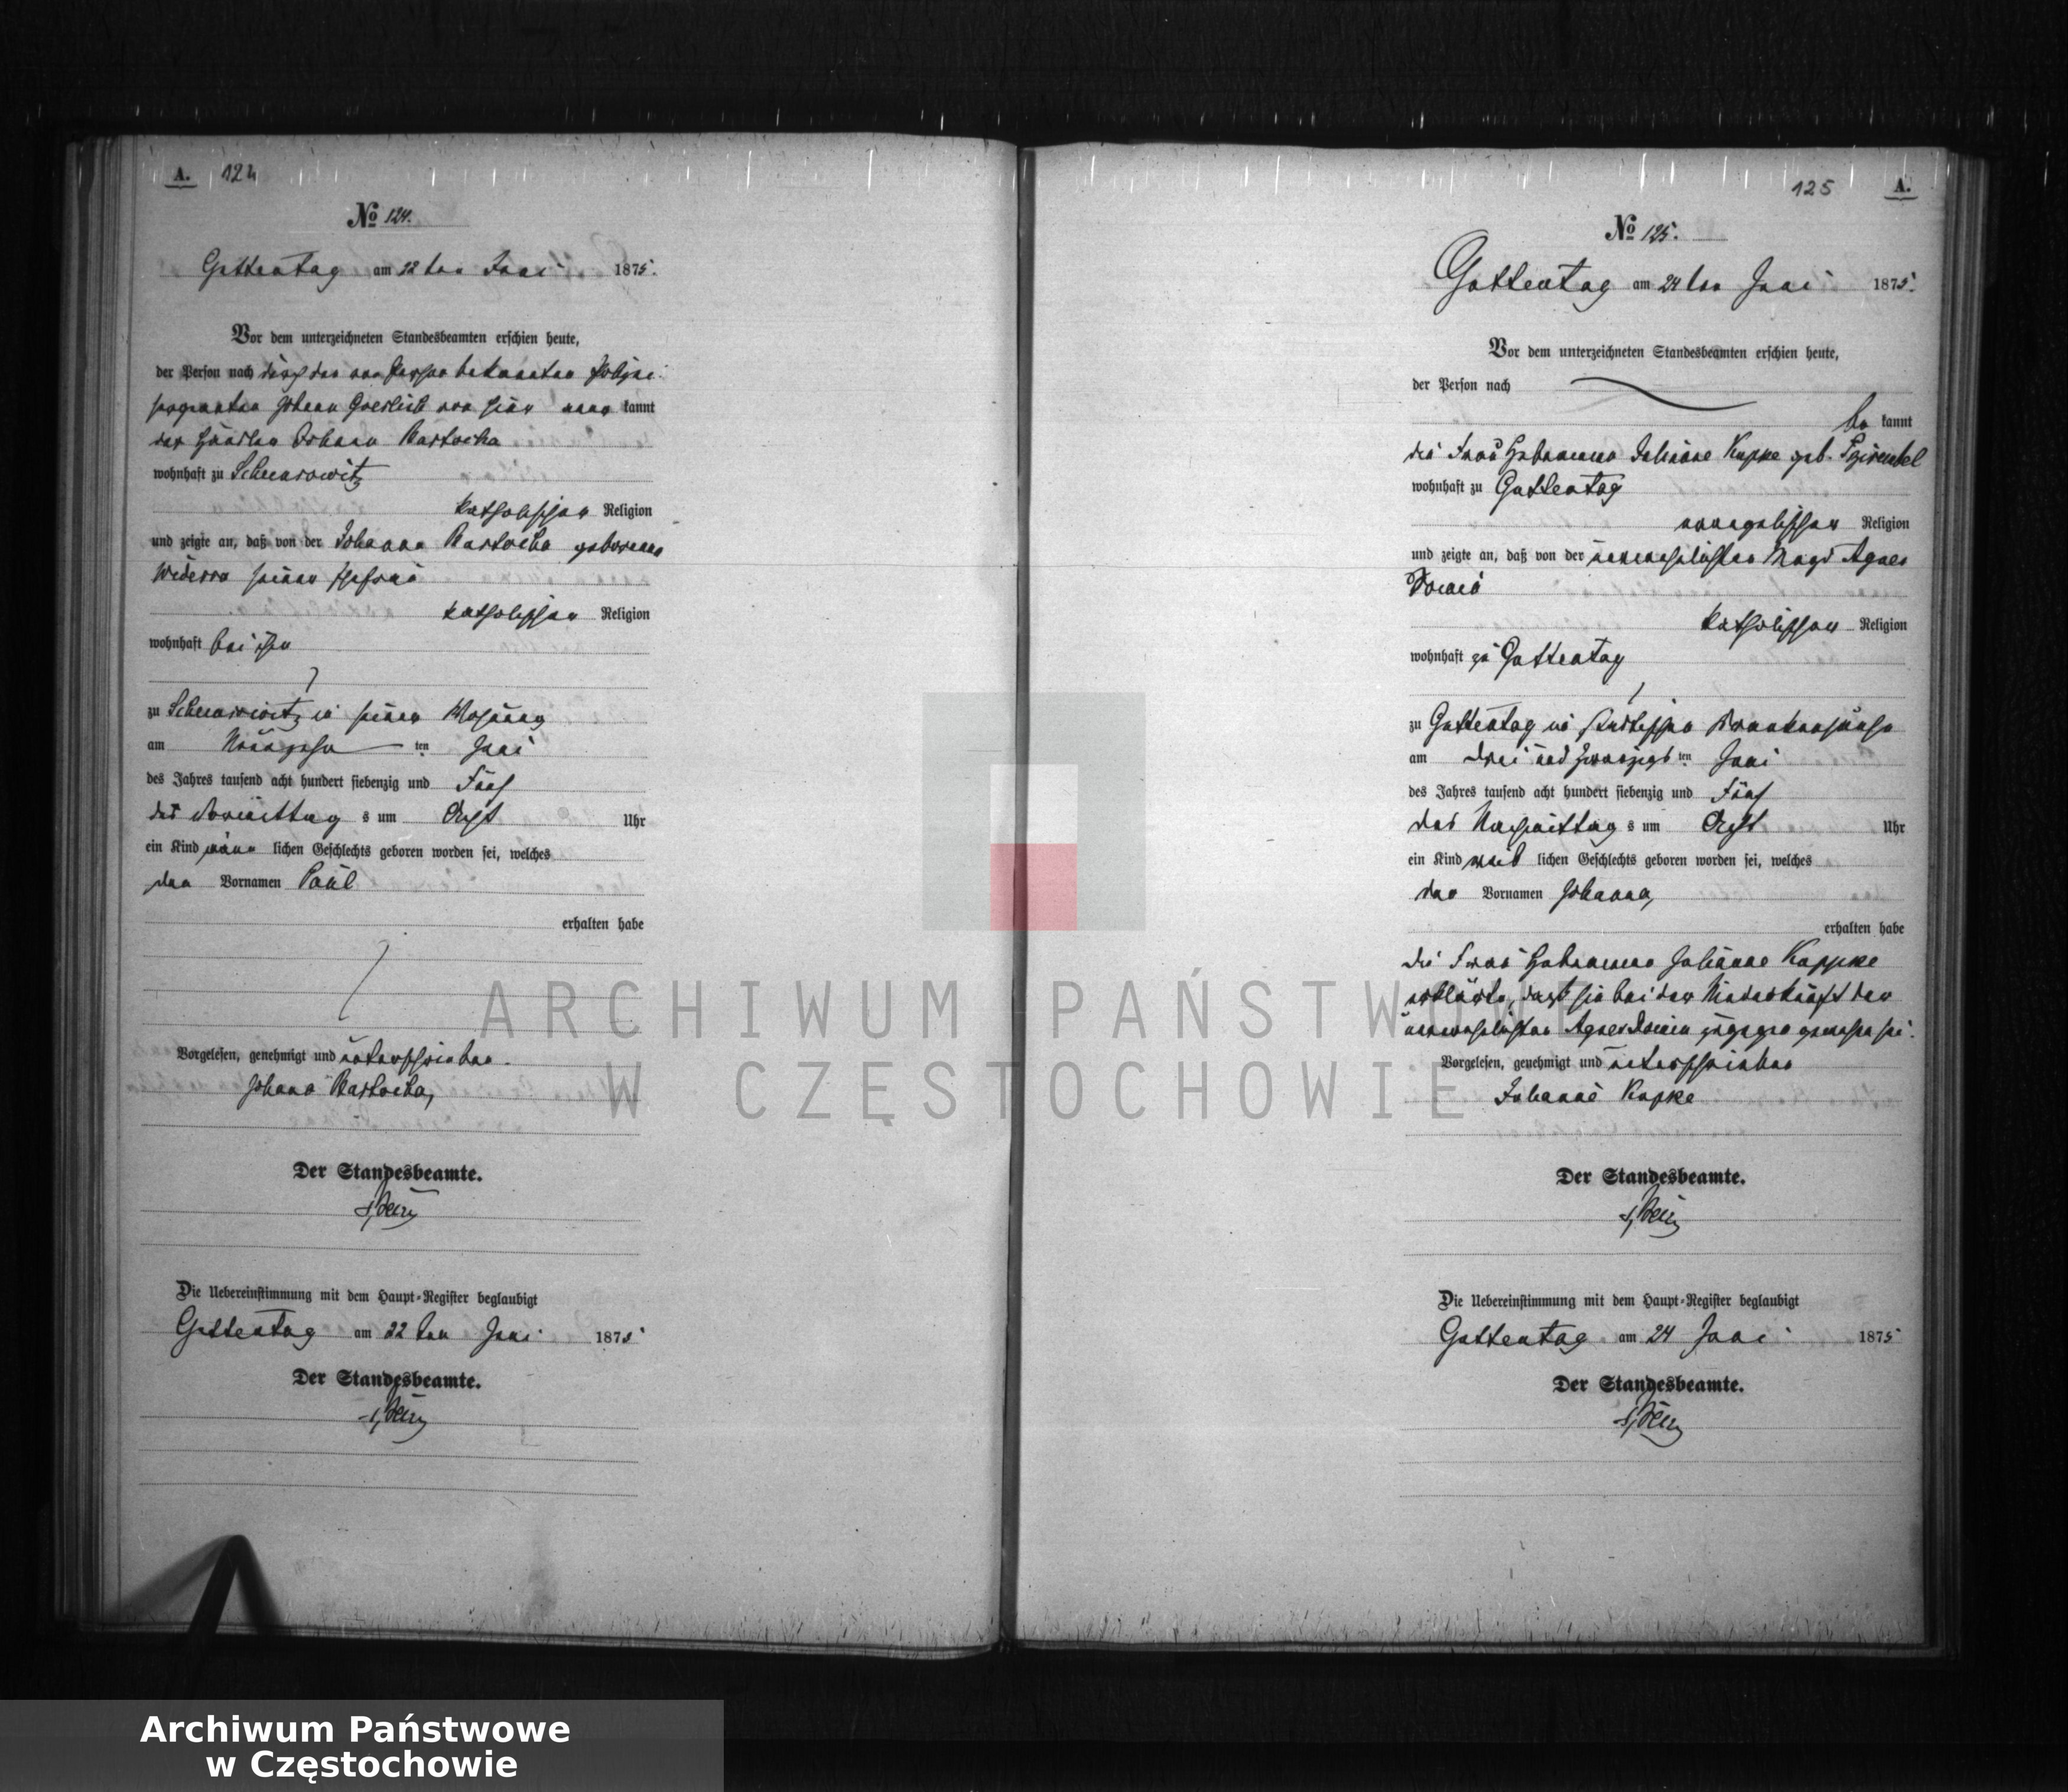 A. 124
№ 124.
Guttentag am 22ten Juni 1875.
Vor dem unterzeichneten Standesbeamten erschien heute,
der Person nach durch den von Person bekannten Polizei
sergeanten Johann Goerlich von hier aner kannt
der Häusler Johann Bartocha
wohnhaft zu
katholischer Religion
und zeigte an, daß von der Johanna Bartocha geborene
seiner Ehefrau
katholischer Religion
wohnhaft bei ihm
zu in seiner Wohnung
am Neunzehn ten Juni
des Jahres tausend acht hundert siebenzig und Fünf
des Vormittag s um Acht Uhr
ein Kind männ lichen Geschlechts geboren worden sei, welches
den Vornamen Paul
erhalten habe
Vorgelesen, genehmigt und unterschrieben.
Johann Bartocha,
Der Standesbeamte.
Die Uebereinstimmung mit dem Haupt-Register beglaubigt
Guttentag am 22ten Juni 1875
Der Standesbeamte.
125 A.
№ 125.
Guttentag am 24ten Juni 1875.
Vor dem unterzeichneten Standesbeamten erschien heute,
der Person nach
be kannt
die Frau Hebamme Julianne Kupke geb.
wohnhaft zu Guttentag
evangelischer Religion
und zeigte an, daß von der unverehelichten Magd Agnes
katholischer Religion
wohnhaft zu Guttentag
zu Guttentag im Krankenhause
am drei und zwanzigs ten Juni
des Jahres tausend acht hundert siebenzig und Fünf
des Nachmittag s um Acht Uhr
ein Kind weib lichen Geschlechts geboren worden sei, welches
den Vornamen Johanna,
erhalten habe
die Frau Hebamme Julianne Kuppke
erklärte, daß sie bei der Niederkunft der
unverehelichten Agnes zugegen gewesen sei.
Vorgelesen, genehmigt und unterschrieben
Julianne Kupke
Der Standesbeamte.
Die Uebereinstimmung mit dem Haupt-Register beglaubigt
Guttentag am 24 Juni 1875
Der Standesbeamte.
ARCHIWUM PAŃSTWOWE
W CZĘSTOCHOWIE
Archiwum Państwowe
w Częstochowie